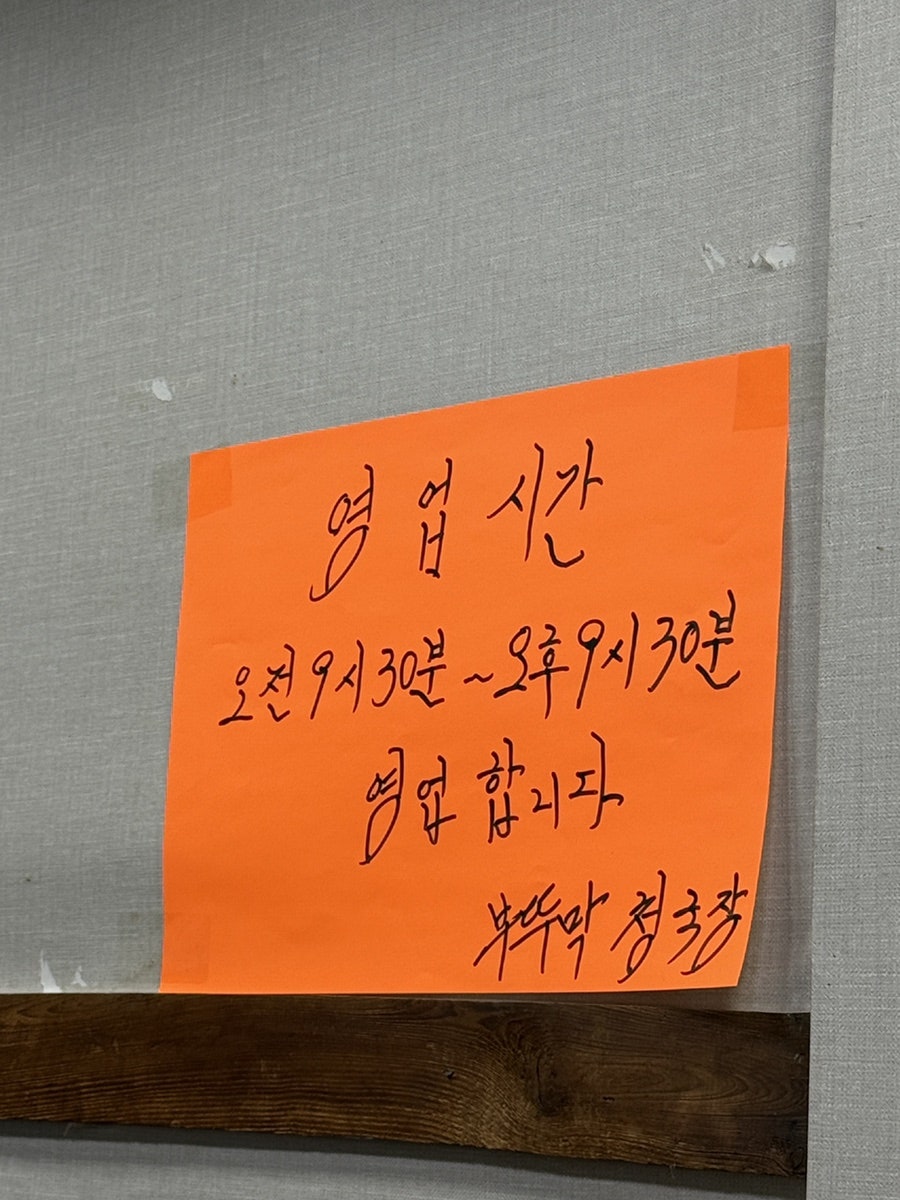 영업시간
오전9시30분~오후9시30분
영업합니다
부뚜막 청국장